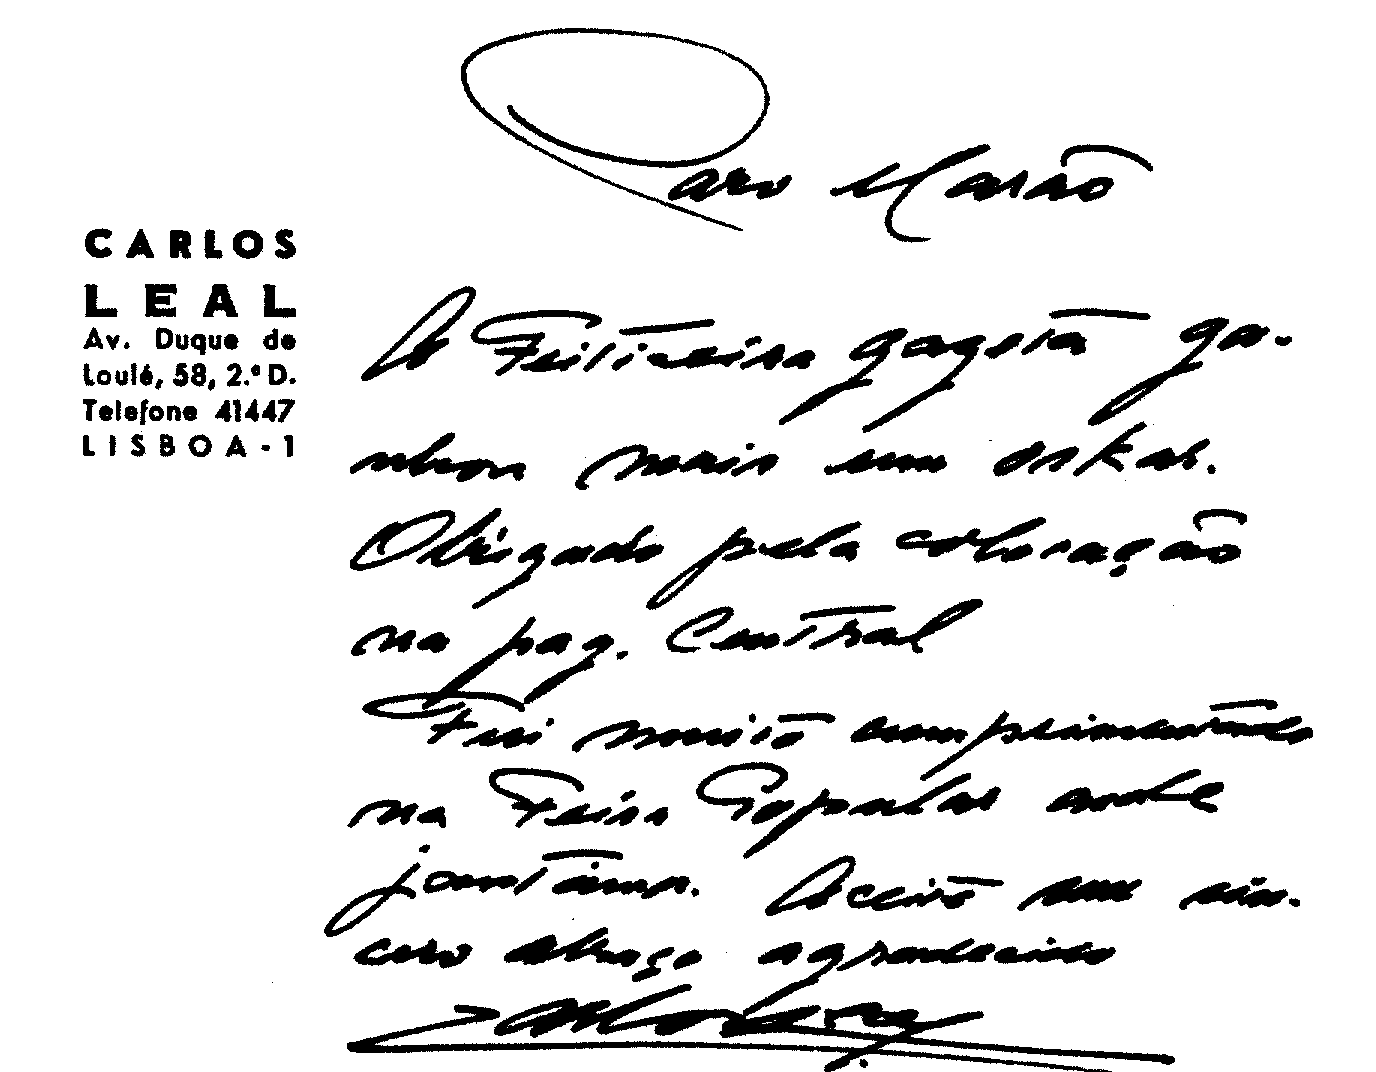 Caro Marão
CARLOS
LEAL
Av. Duque de
Loulé, 58, 2.º D.
Telefone 41447
LISBOA-1
A Feiticeira gagota ga-
nhou mais um oskar.
Obrigado pela colocação
na pag. Central
Fui muito cumprimentado
na Feira Popular onde
jantámos. Aceite um sin-
cero abraço agradecido